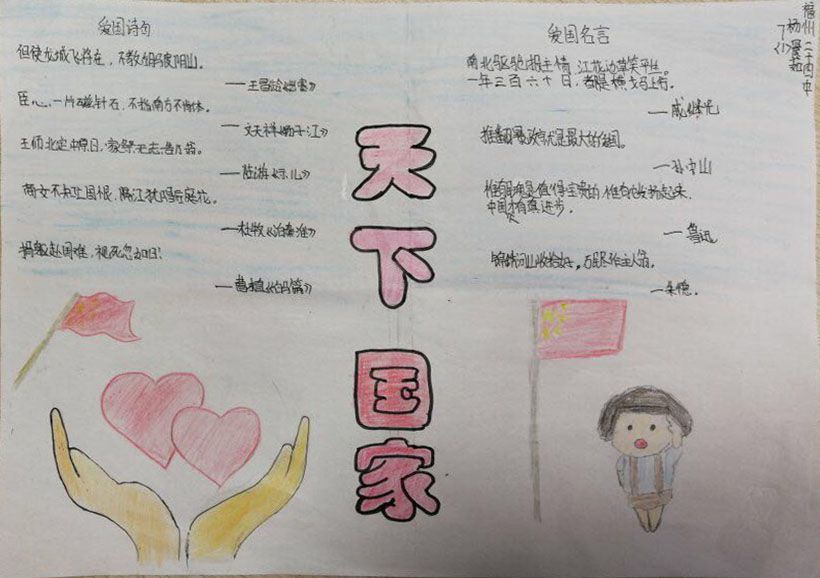 爱国诗句
但使龙城飞将在，不教胡马度阴山。
——王昌龄《出塞》
臣心一片磁针石，不指南方不肯休。
——文天祥《扬子江》
王师北定中原日，家祭无忘告乃翁。
——陆游《示儿》
商女不知亡国恨，隔江犹唱后庭花。
——杜牧《泊秦淮》
捐躯赴国难，视死忽如归！
——曹植《白马篇》
天下国家
爱国名言
南北驱驰报主情，江花边草笑平生。
一年三百六十日，都是横戈马上行。
——戚继光
——孙中山
惟有民魂是值得宝贵的，惟有他发扬起来，
中国才有真进步。
——鲁迅
锦绣河山收拾好，万民尽作主人翁。
——朱德。
福州二十四中
7（1）